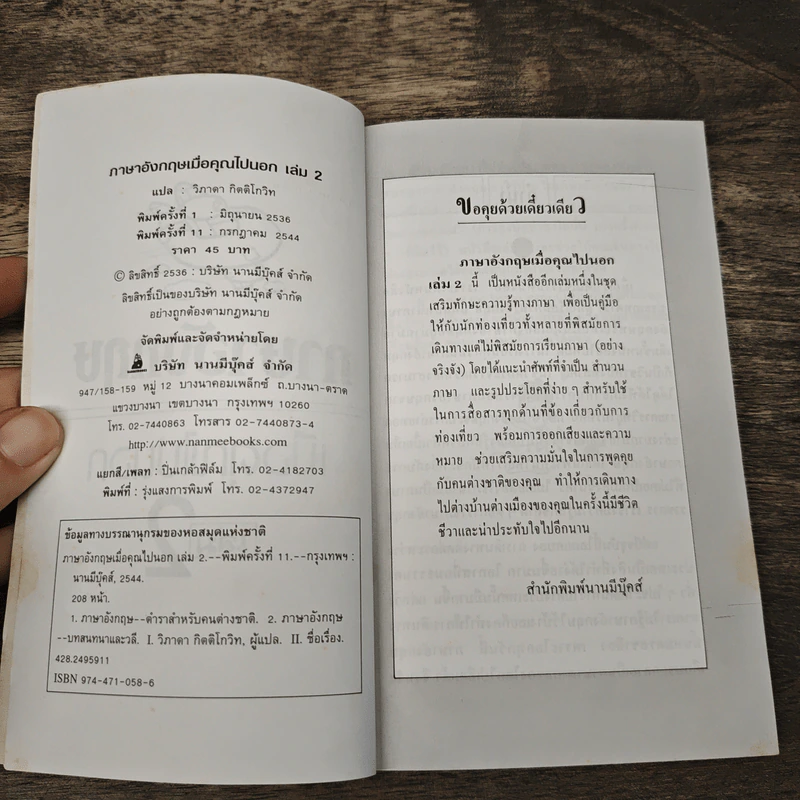 ภาษาอังกฤษเมื่อคุณไปนอก เล่ม 2
แปล : วิภาดา กิตติโกวิท
พิมพ์ครั้งที่ 1 : มิถุนายน 2536
พิมพ์ครั้งที่ 11 : กรกฎาคม 2544
ราคา 45 บาท
© ลิขสิทธิ์ 2536 : บริษัท นานมีบุ๊คส์ จำกัด
ลิขสิทธิ์เป็นของบริษัท นานมีบุ๊คส์ จำกัด
อย่างถูกต้องตามกฎหมาย
จัดพิมพ์และจัดจำหน่ายโดย
บริษัท นานมีบุ๊คส์ จำกัด
947/158-159 หมู่ 12 บางนาคอมเพล็กซ์ ถ.บางนา-ตราด
แขวงบางนา เขตบางนา กรุงเทพฯ 10260
โทร. 02-7440863 โทรสาร 02-7440873-4
http://www.nanmeebooks.com
แยกสี/เพลท : ปิ่นเกล้าฟิล์ม โทร. 02-4182703
พิมพ์ที่ : รุ่งแสงการพิมพ์ โทร. 02-4372947
ข้อมูลทางบรรณานุกรมของหอสมุดแห่งชาติ
ภาษาอังกฤษเมื่อคุณไปนอก เล่ม 2.--พิมพ์ครั้งที่ 11.--กรุงเทพฯ :
นานมีบุ๊คส์, 2544.
208 หน้า.
1. ภาษาอังกฤษ--ตำราสำหรับคนต่างชาติ. 2. ภาษาอังกฤษ
--บทสนทนาและวลี. I. วิภาดา กิตติโกวิท, ผู้แปล. II. ชื่อเรื่อง.
428.2495911
ISBN 974-471-058-6
ขอคุยด้วยเดี๋ยวเดียว
ภาษาอังกฤษเมื่อคุณไปนอก
เล่ม 2 นี้ เป็นหนังสืออีกเล่มหนึ่งในชุด
เสริมทักษะความรู้ทางภาษา เพื่อเป็นคู่มือ
ให้กับนักท่องเที่ยวทั้งหลายที่พิสมัยการ
เดินทางแต่ไม่พิสมัยการเรียนภาษา (อย่าง
จริงจัง) โดยได้แนะนำศัพท์ที่จำเป็น สำนวน
ภาษา และรูปประโยคที่ง่าย ๆ สำหรับใช้
ในการสื่อสารทุกด้านที่ข้องเกี่ยวกับการ
ท่องเที่ยว พร้อมการออกเสียงและความ
หมาย ช่วยเสริมความมั่นใจในการพูดคุย
กับคนต่างชาติของคุณ ทำให้การเดินทาง
ไปต่างบ้านต่างเมืองของคุณในครั้งนี้มีชีวิต
ชีวาและน่าประทับใจไปอีกนาน
สำนักพิมพ์นานมีบุ๊คส์